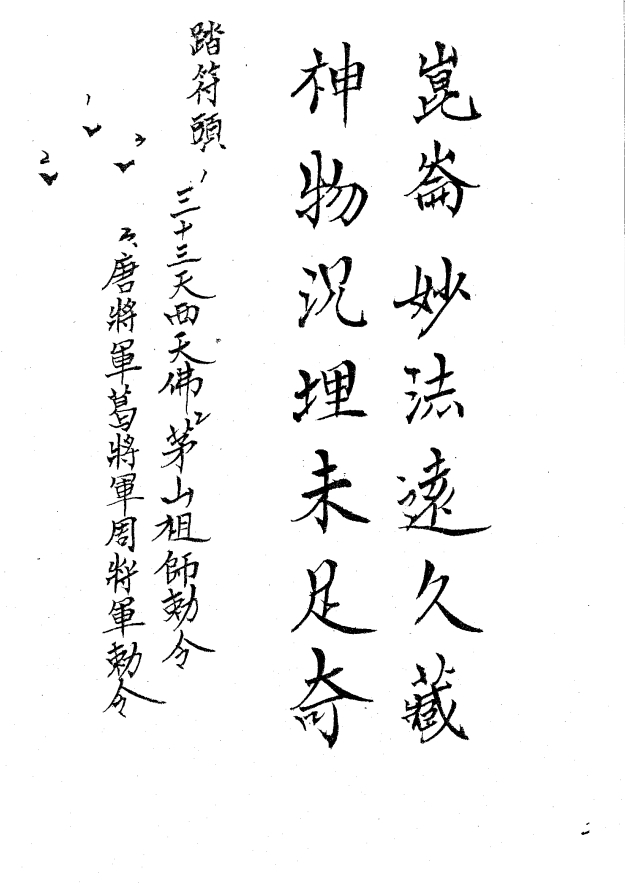 崑崙妙法遠久藏
神物況埋未足奇
踏符頭
1 三十三天西天佛 2 茅山祖師勅令
3 唐將軍葛將軍周將軍勅令
1
2
3
二